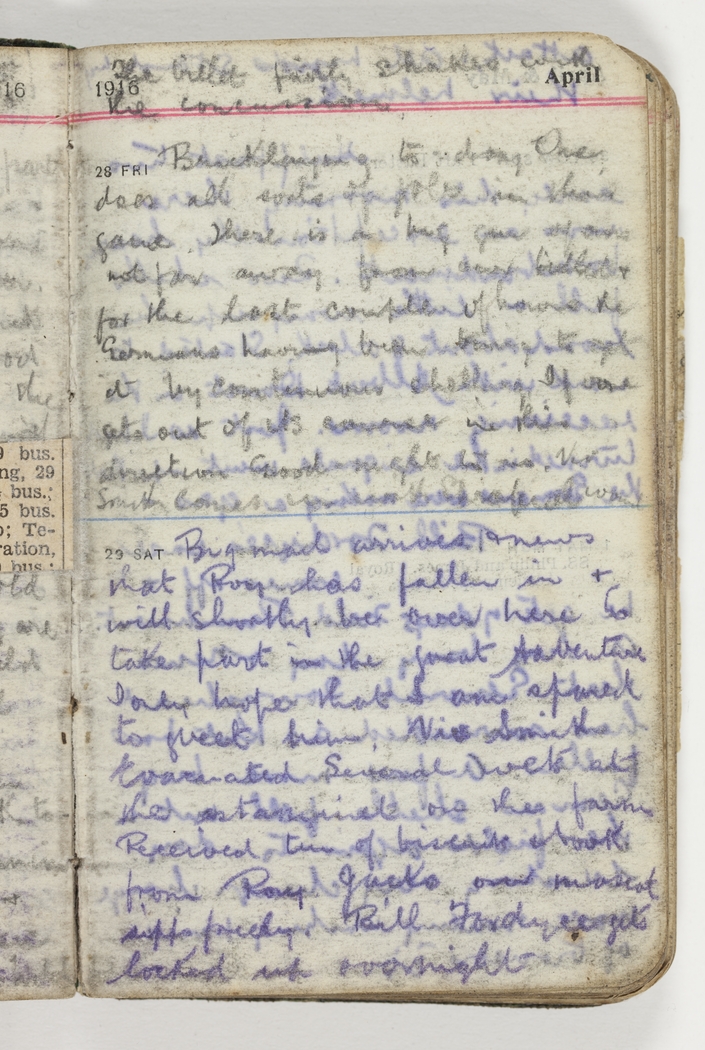 16
The billet fairly shakes with
1916 April
the concussion.
28 FRI Bricklaying to day. One
does all sorts of jobs in this
game. There is a big gun of ours
not far away from our billet +
for the last couple of hours the
Germans having been trying to get
it by continuous shelling. If one
gets out of its course in this
direction Good night to us. Vic
Smith comes
9 bus.
ng, 29
bus.;
5 bus.
o; Te-
ration,
bus.;
the
29 SAT Big mail arrives + news
that Roy has fallen in +
will shortly be over here to
take part in the great Adventure
I only hope that I am spared
to greet him. Vic Smith
Evacuated. Several drunk at
the estaminet on the farm
Received tin of biscuits + book
from Roy. Jacko our mascot
sups freely. Bill Fordyce gets
locked up overnight